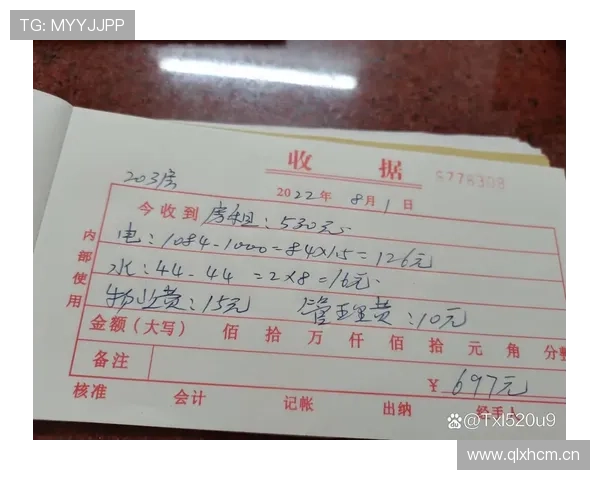 TG: MYYJJPP
收 据
S778303
203房
2022年 8月1日
今收到 房租:530元
电:1084-1000=84×1.5=126元
水:44-44 =2×8=16元
物业费:15元 管理费:10元
内部使用
金额(大写) 佰 拾 万 仟 佰 拾 元 角 分整
备注
¥ 697元
核准 会计 记帐 出纳 经手人
@Txl520u9
www.qlxhcm.cn